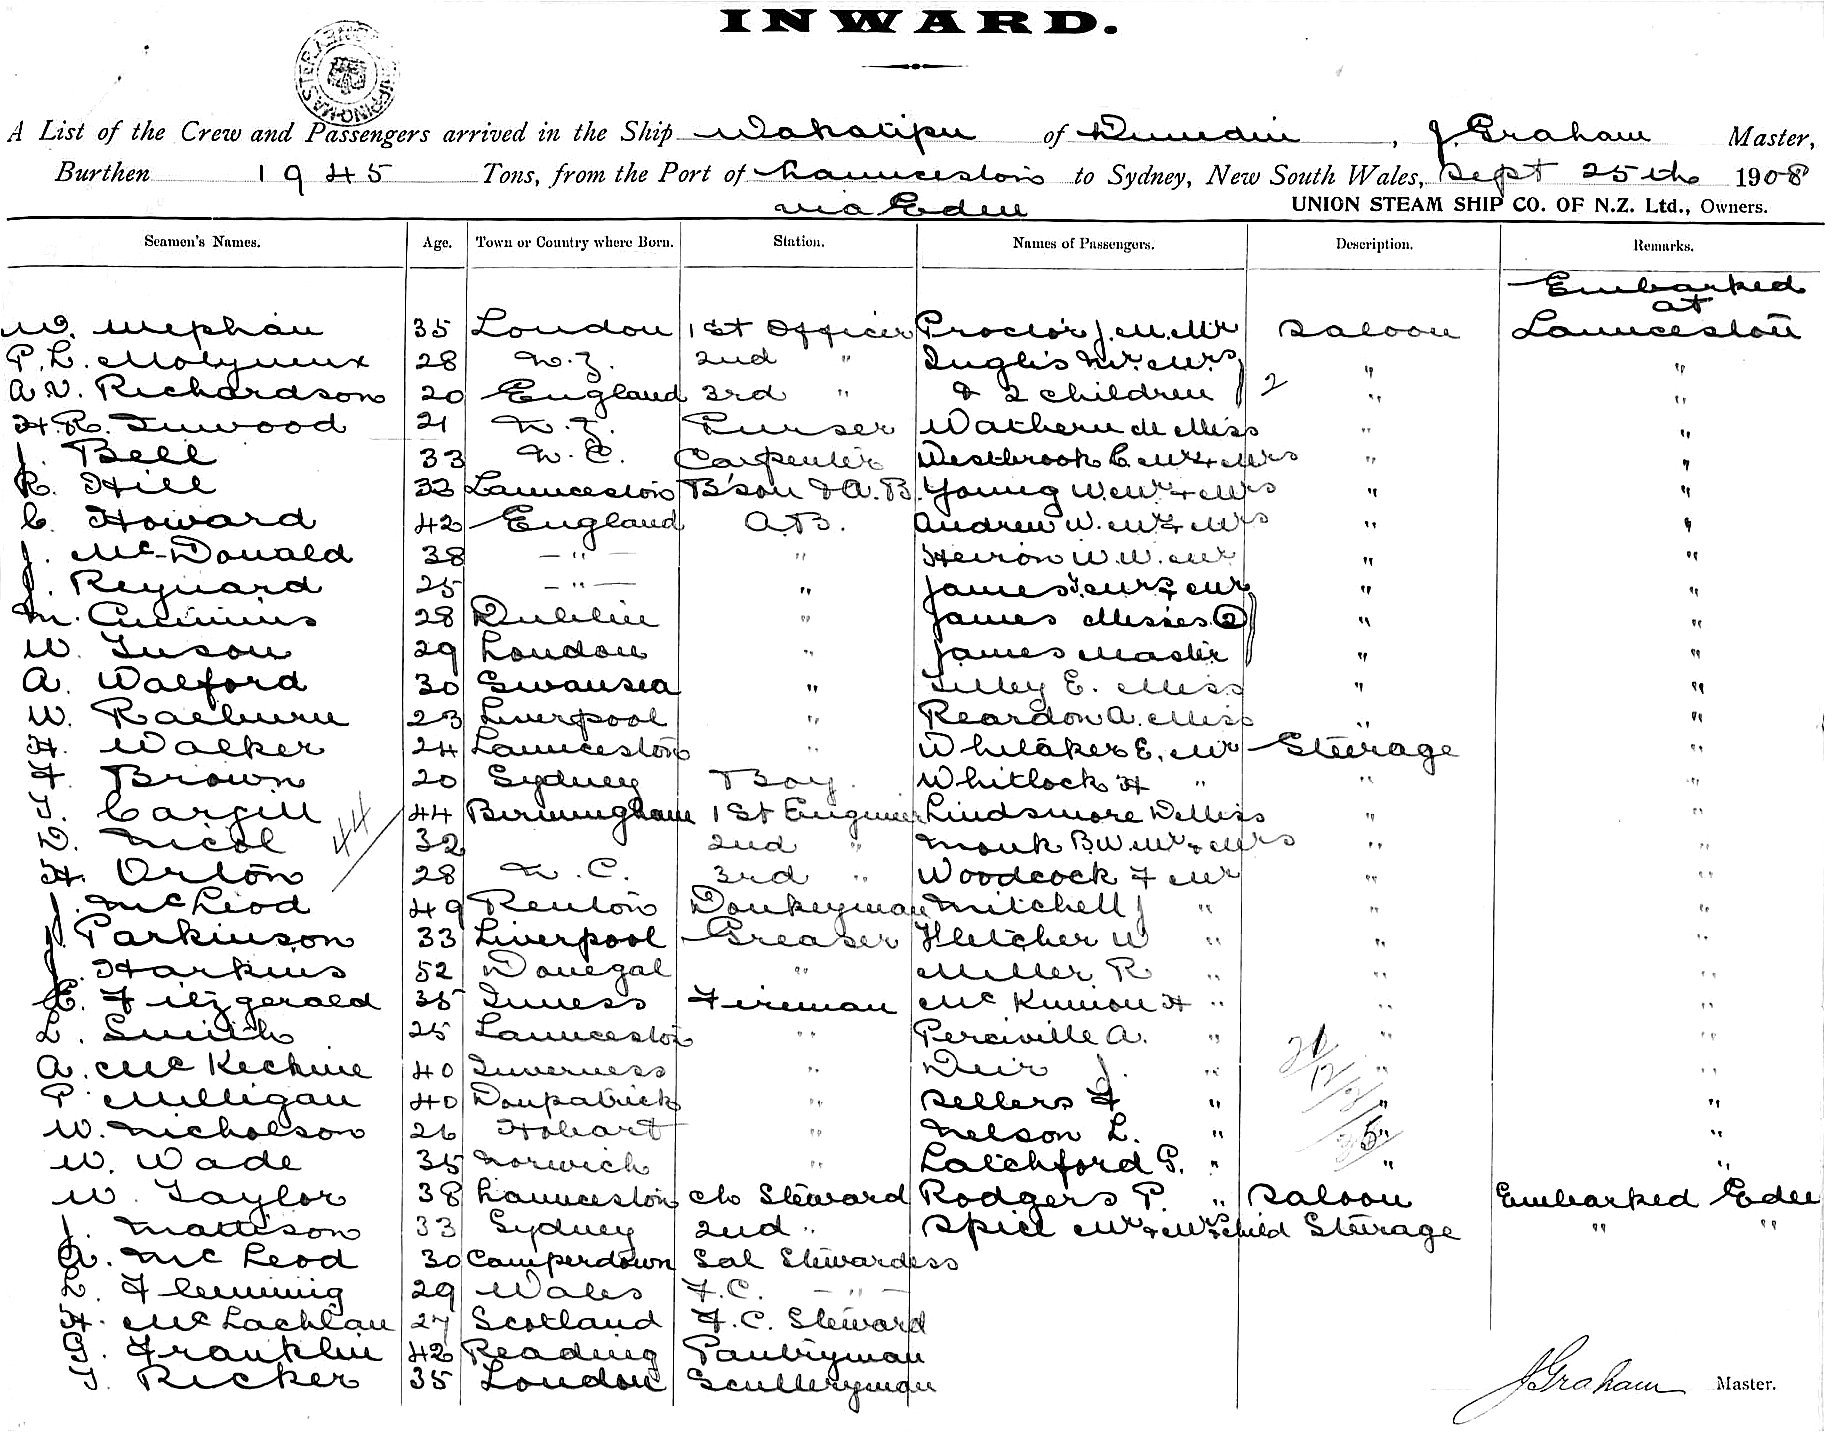 INWARD.
A List of the Crew and Passengers arrived in the Ship Wakatipu of Dunedin, J. Graham Master,
Burthen 1945 Tons, from the Port of Launceston to Sydney, New South Wales, Sept 25th 1908
via Eden UNION STEAM SHIP CO. OF N.Z. Ltd., Owners.
Seamen's Names. Age. Town or Country where Born. Station. Names of Passengers. Description. Remarks.
Embarked
at
W. Mephan 35 London 1st Officer Proctor J. M. Mr Saloon Launceston
P. L. Molyneux 28 N.Z. 2nd " Inglis Mr. Mrs " "
A. V. Richardson 20 England 3rd " & 2 children 2 " "
H. R. Inwood 21 N.Z. Purser Wathern M Miss " "
J. Bell 33 N.C. Carpenter Westbrook C. Mr & Mrs " "
R. Hill 32 Launceston B'son & A.B. Young W. Mr & Mrs " "
C. Howard 42 England A.B. Andrew W. Mr & Mrs " "
J. McDonald 38 — " — " Heiron W. W. Mr " "
J. Reynard 25 — " — " James T. Mrs & Mr " "
M. Cummins 28 Dublin " James Misses 2 " "
W. Tuson 29 London " James Master " "
A. Walford 30 Swansea " Lilley E. Miss " "
W. Raeburn 23 Liverpool " Reardon A. Miss " "
H. Walker 24 Launceston " Whitaker E. Mr Steerage "
F. Brown 20 Sydney Boy. Whitlock H " " "
T. Cargill 44 Birmingham 1st Engineer Lindsmore D Miss " "
D. Nicol 44 32 2nd " Monk B. W. Mr & Mrs " "
H. Orton 28 N.C. 3rd " Woodcock F Mr " "
J. McLeod 49 Renton Donkeyman Mitchell J " " "
J. Parkinson 33 Liverpool Greaser Fletcher W " " "
J. Harkins 52 Donegal " Miller R " " "
E. Fitzgerald 35 Inness Fireman McKinnon H " " "
L. Smith 25 Launceston " Perciville A. " " "
A. McKechnie 40 Inverness " Weir J. " "
P. Milligan 40 Donpatrick " Sellers F " " "
W. Nicholson 26 Hobart " Nelson L. " " "
W. Wade 35 Norwich " Latchford G. " " "
W. Taylor 38 Launceston Ch Steward Rodgers P. " Saloon Embarked Eden
J. Mattison 33 Sydney 2nd " Spiel Mr & Mrs & child Steerage " "
A. McLeod 30 Camperdown Sal Stewardess
L. Flemming 29 Wales F.C. — " —
H. McLachlan 27 Scotland F.C. Steward
G. Franklin 42 Reading Pantryman
T. Ricker 35 London Sculleryman
J Graham Master.